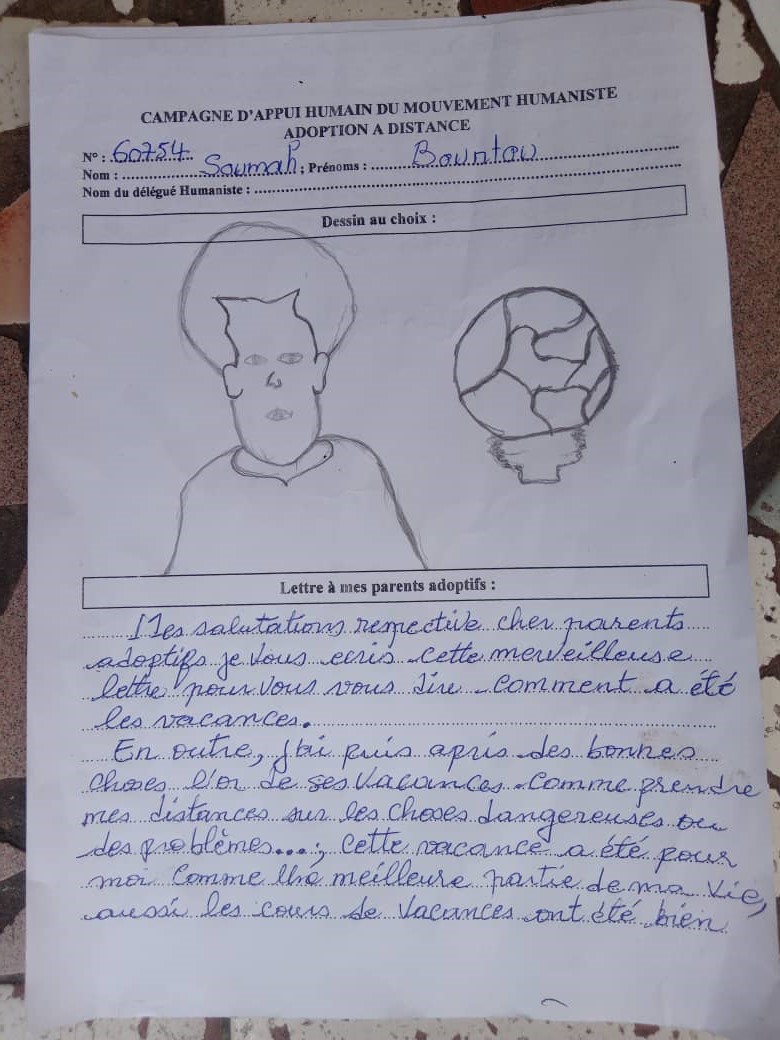 CAMPAGNE D'APPUI HUMAIN DU MOUVEMENT HUMANISTE
ADOPTION A DISTANCE
N° : 60754
Nom : Soumah ; Prénoms : Bountou
Nom du délégué Humaniste :
Dessin au choix :
Lettre à mes parents adoptifs :
Mes salutations respective cher parents
adoptifs je vous ecris cette merveilleuse
lettre pour vous vous dire comment a été
les vacances.
En outre, j'ai puis apris des bonnes
choses l'or de ses vacances comme prendre
mes distances sur les choses dangereuses ou
des problèmes...; cette vacance a été pour
moi comme la meilleure partie de ma vie,
aussi les cours de vacances ont été bien